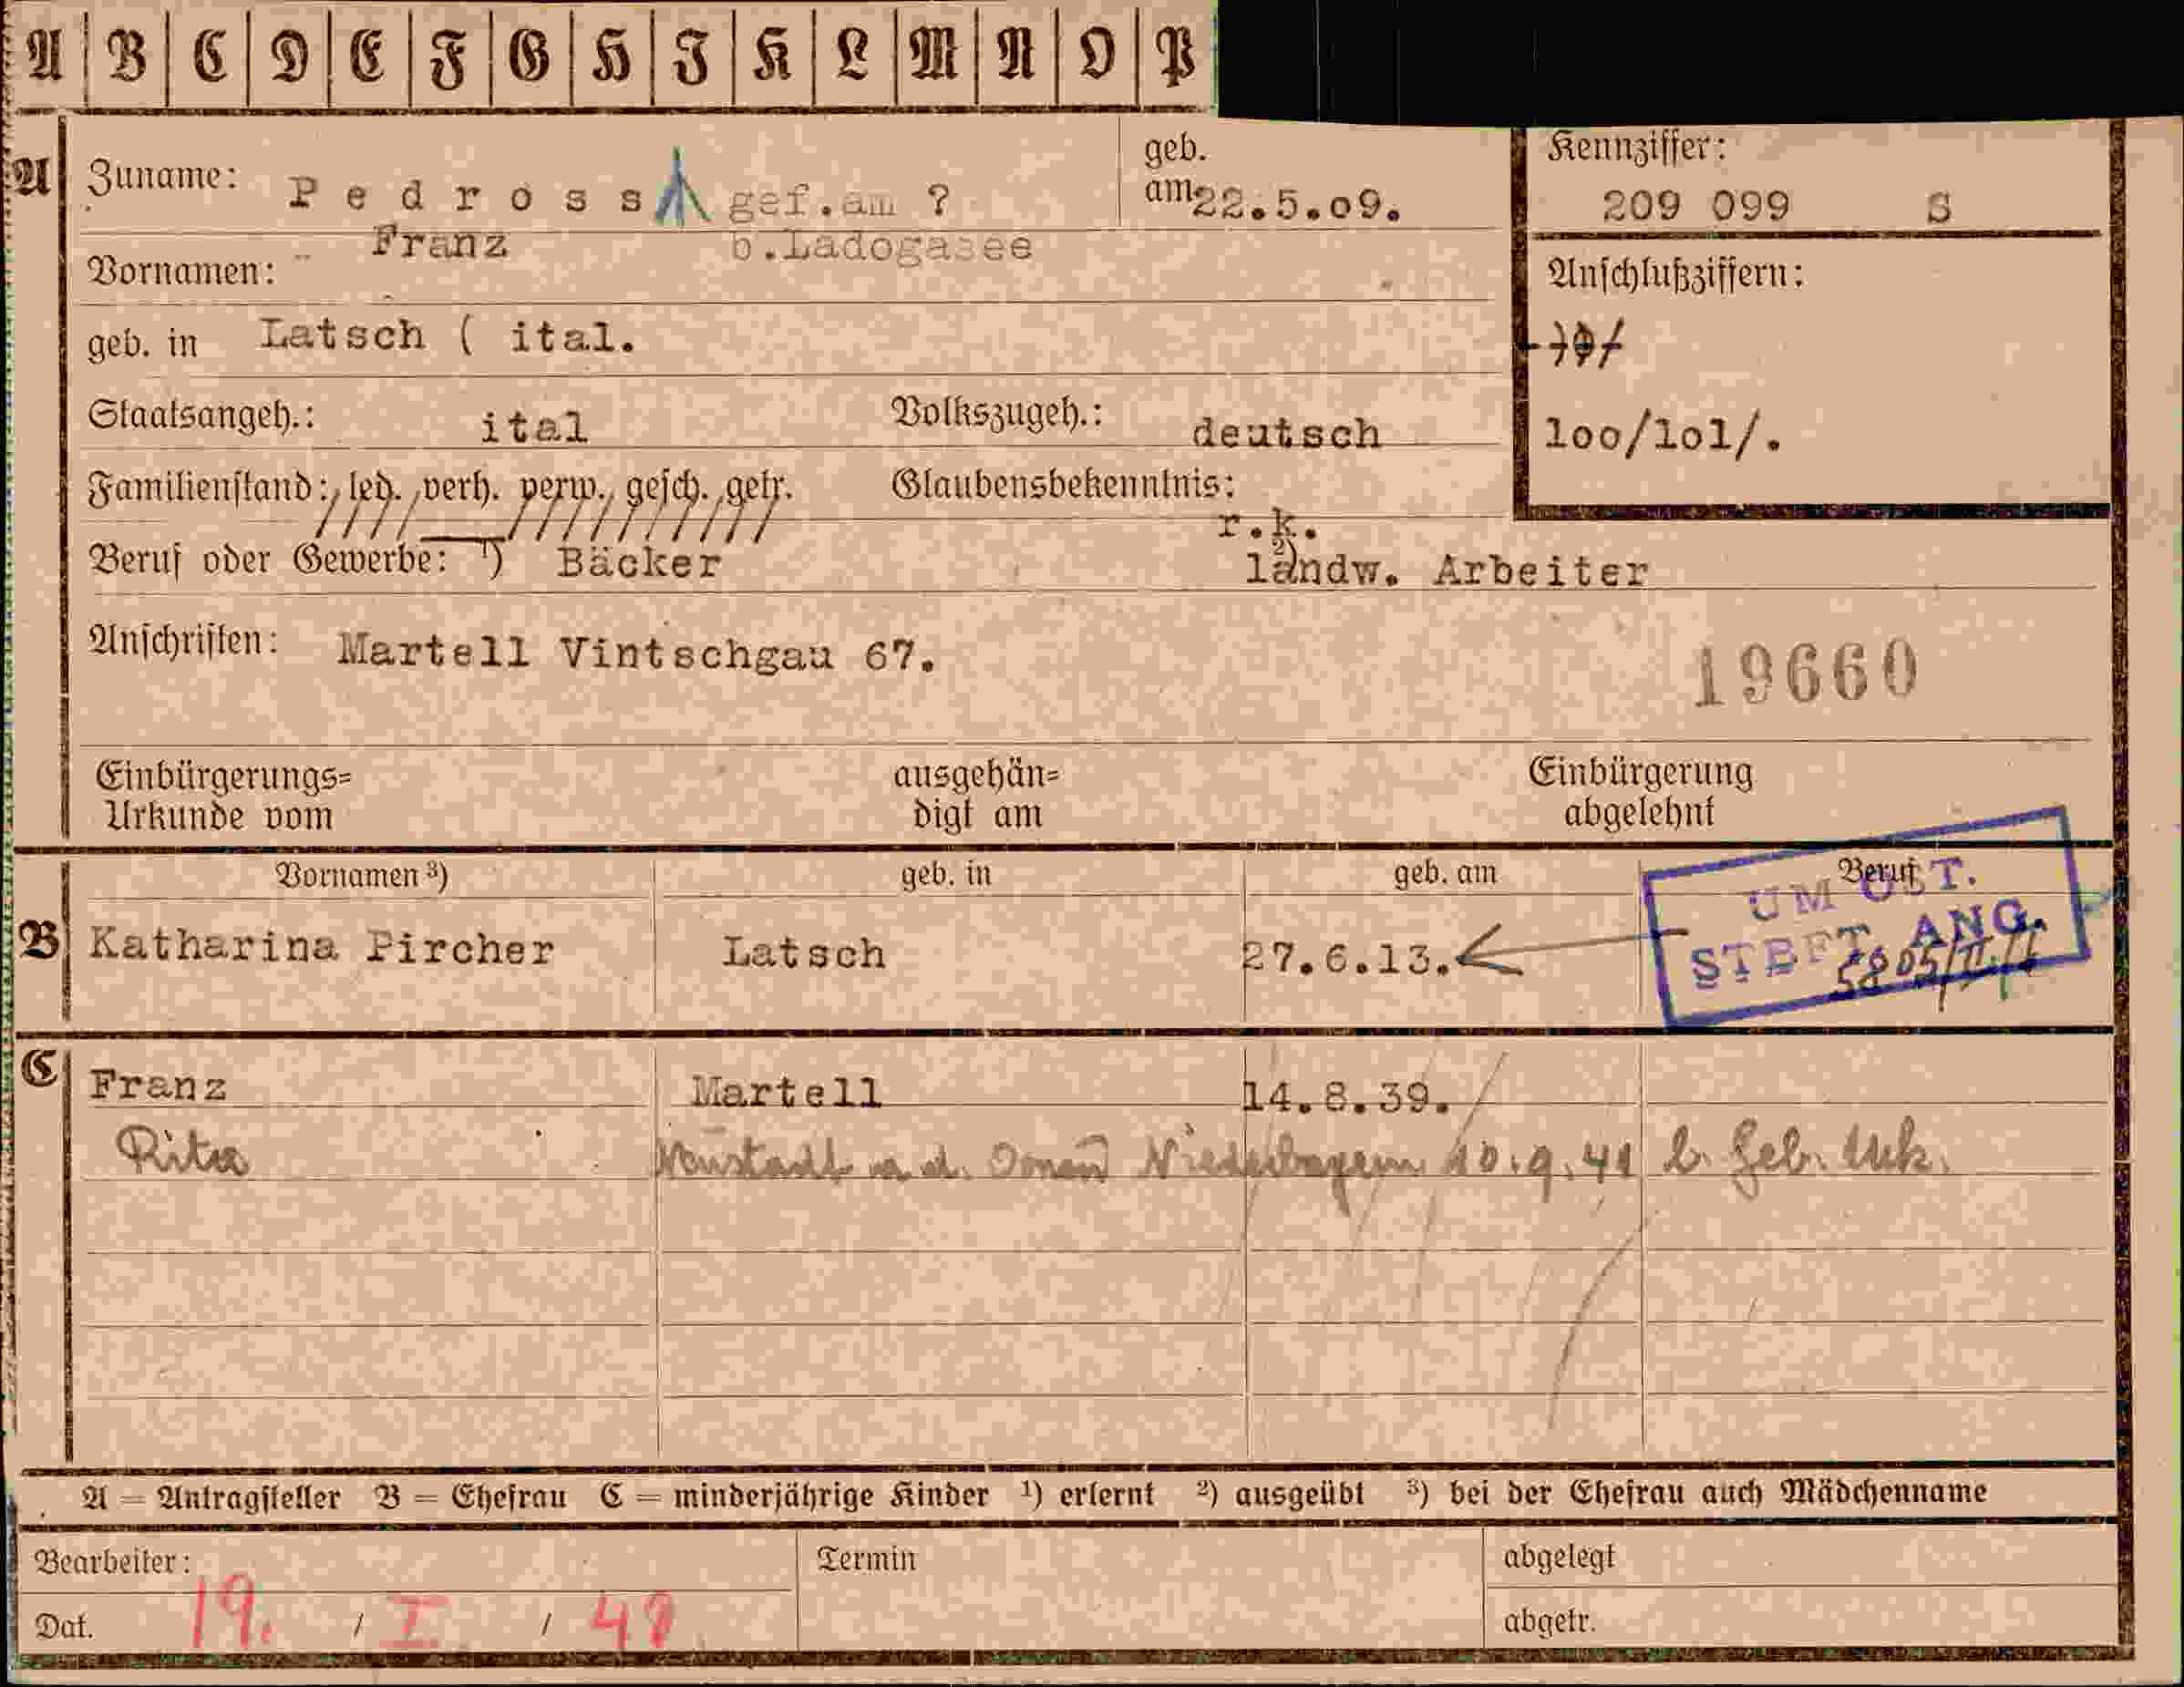 A B C D E F G H I K L M N O P
A Zuname: Pedross gef.am ? geb. am 22.5.09. Kennziffer: 209 099 S
Vornamen: Franz b.Ladogasee
Anschlußziffern:
geb. in Latsch ( ital.
Staatsangeh.: ital Volkszugeh.: deutsch 100/101/.
Familienstand: led. verh. verw. gesch. getr. Glaubensbekenntnis: r.k.
Beruf oder Gewerbe: 1) Bäcker 2) landw. Arbeiter
Anschriften: Martell Vintschgau 67.
19660
Einbürgerungs= ausgehän= Einbürgerung
Urkunde vom digt am abgelehnt
Vornamen 3) geb. in geb. am Beruf
UM OST.
STBFT. ANG.
B Katharina Pircher Latsch 27.6.13.
C Franz Martell 14.8.39.
Rita Neustadt a d. Donau Niederbayern 10.9.41 lt. Geb. Urk.
A = Antragsteller B = Ehefrau C = minderjährige Kinder 1) erlernt 2) ausgeübt 3) bei der Ehefrau auch Mädchenname
Bearbeiter: Termin abgelegt
Dat. 19. / I / 40 abgetr.